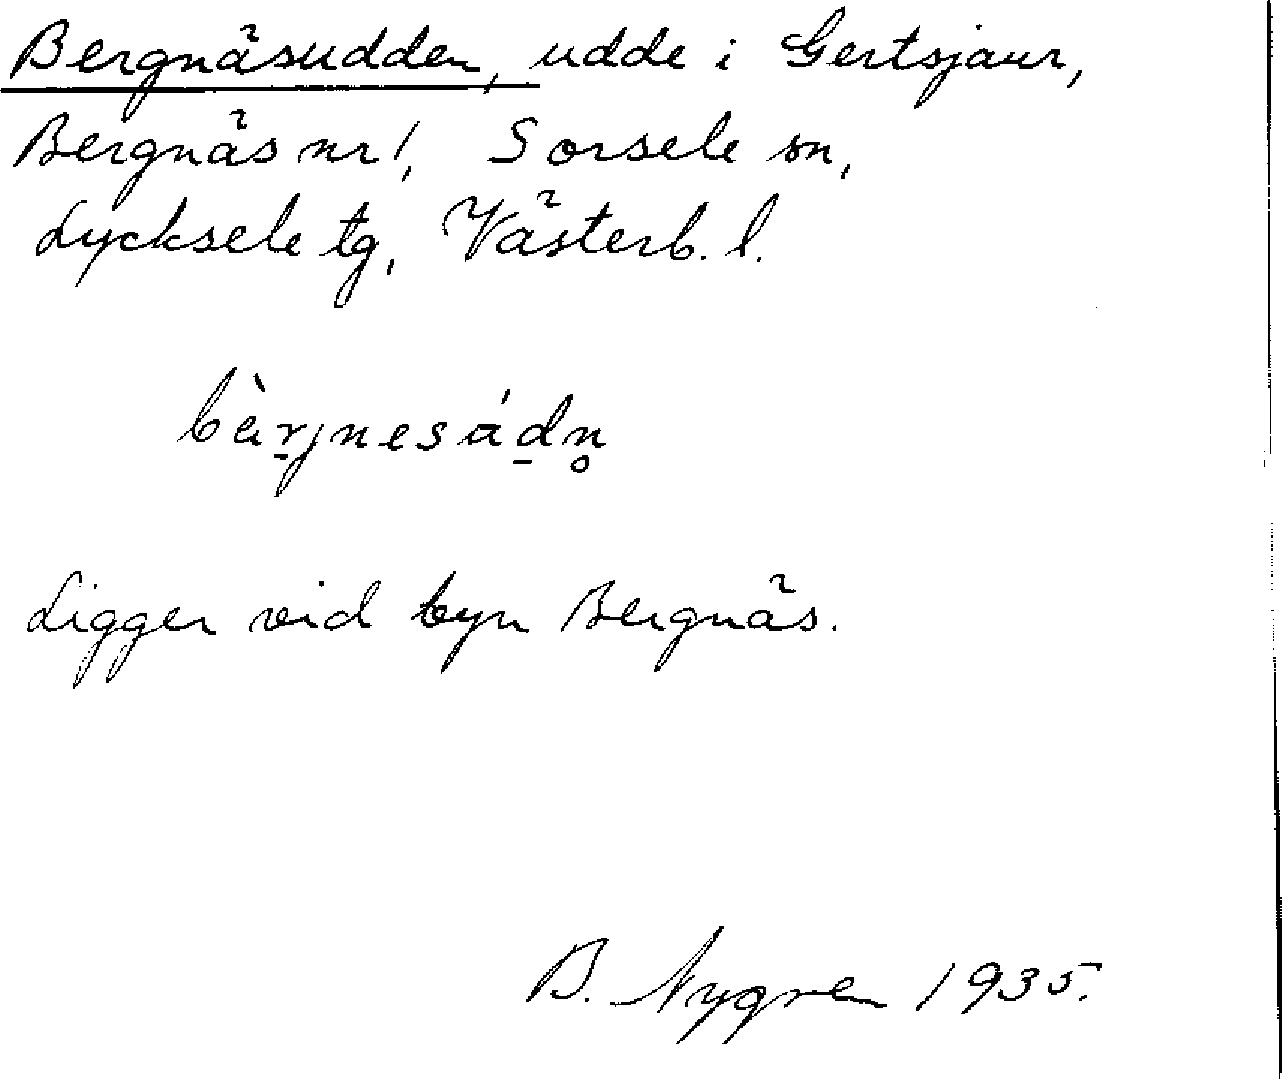 Bergnäsudden, udde i Gertsjaur,
Bergnäs nr 1, Sorsele sn,
Lycksele tg, Västerb. l.
bèr̠jnesúd̠n̥
Ligger vid byn Bergnäs.
B. Nygren 1935.